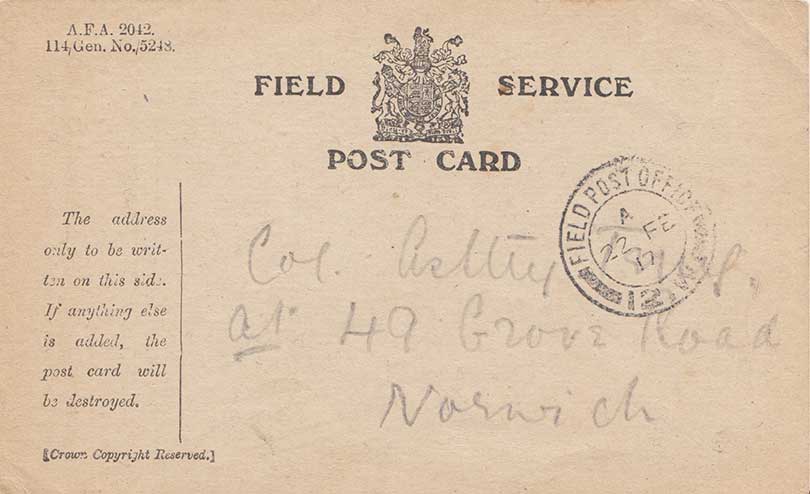 A.F.A. 2042.
114/Gen. No./5248.
FIELD SERVICE
POST CARD
FIELD POST OFFICE
A
22 FE
17
12
The address
only to be writ-
ten on this side.
If anything else
is added, the
post card will
be destroyed.
[Crown Copyright Reserved.]
Col.
at 49 Grove Road
Norwich